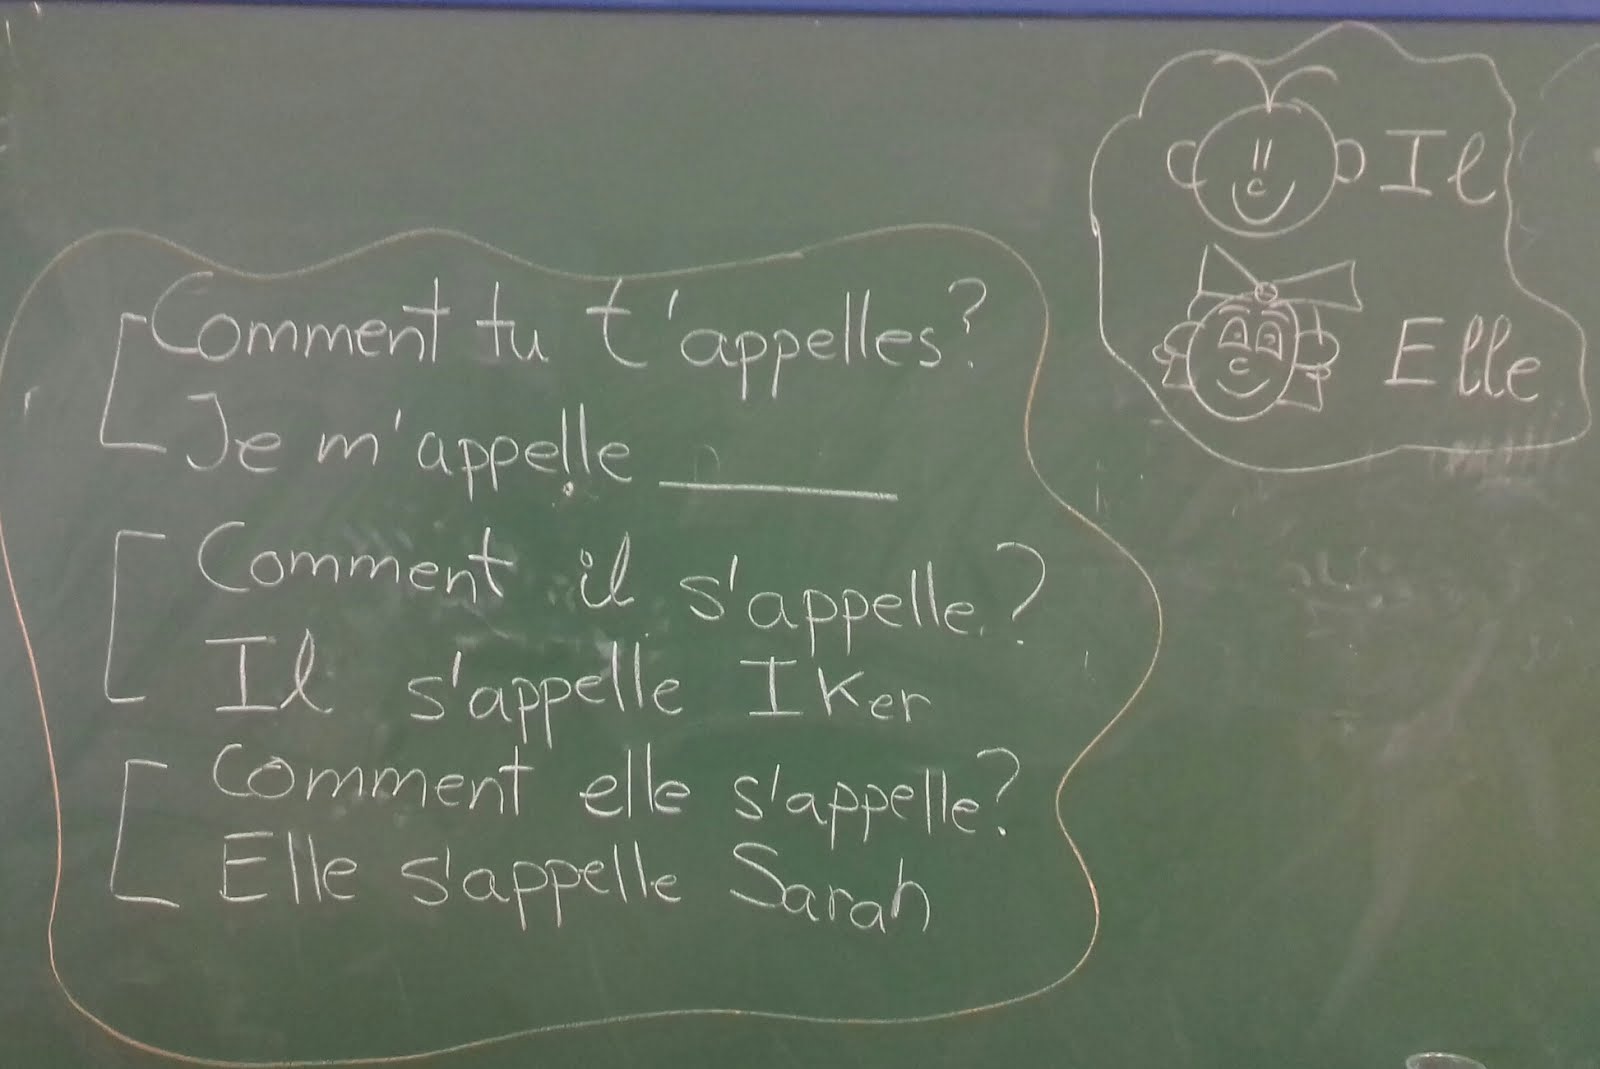 Comment tu t'appelles?
Je m'appelle ______
Comment il s'appelle?
Il s'appelle Iker
Comment elle s'appelle?
Elle s'appelle Sarah
Il
Elle